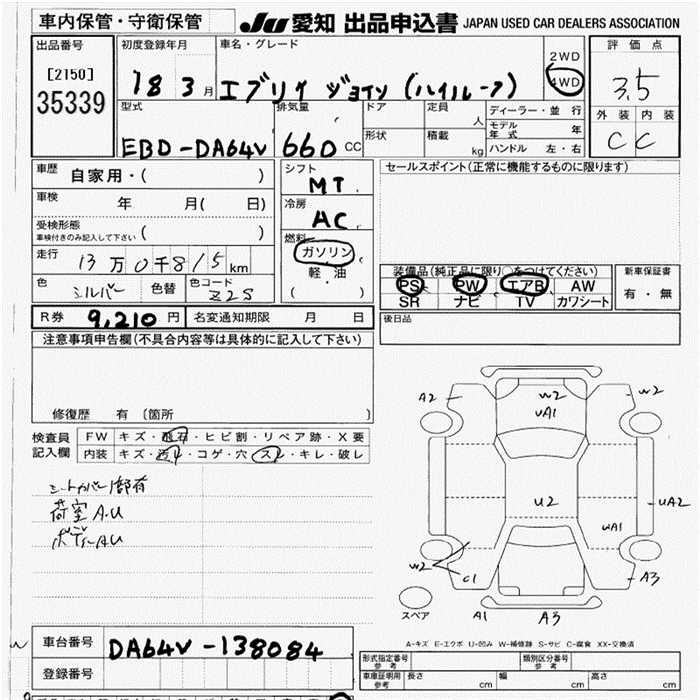 車内保管・守衛保管 JU 愛知 出品申込書 JAPAN USED CAR DEALERS ASSOCIATION
出品番号
[2150]
35339
初度登録年月
18 3 月
車名・グレード
エブリイ ジョイン (ハイルーフ)
2WD
4WD
評価点
3.5
外装 内装
C C
型式
EBD-DA64V
排気量
660 CC
ドア
形状
定員
人
積載
kg
ディーラー・並行
モデル年式 年
ハンドル 左・右
車歴 自家用・( )
車検 年 月( 日)
受検形態
車検付きのみ記入して下さい ( )
走行 13万0千815km
色 シルバー 色替 色コード Z2S
シフト
MT
冷房
AC
燃料
ガソリン
軽・油
( )
セールスポイント(正常に機能するものに限ります)
装備品(純正品に限り○をつけてください)
PS PW エアB AW
SR ナビ TV カワシート
新車保証書
有・無
R券 9,210 円 名変通知期限 月 日
後日品
注意事項申告欄(不具合内容等は具体的に記入して下さい)
修復歴 有〔箇所 〕
検査員
記入欄
FW キズ・飛石・ヒビ割・リペア跡・X要
内装 キズ・汚レ・コゲ・穴・スレ・キレ・破レ
シートカバー1部有
荷室A.U
ボディーAU
A2
W2
UA1
W2
U2
UA2
WA1
W2
C1
A3
スペア
A1
A3
A-キズ E-エクボ U-凹み W-補修跡 S-サビ C-腐食 XX-交換済
車台番号 DA64V-138084
登録番号
形式指定番号
参考
類別区分番号
参考
車庫証明用
参考
長さ cm 幅 cm 高さ cm